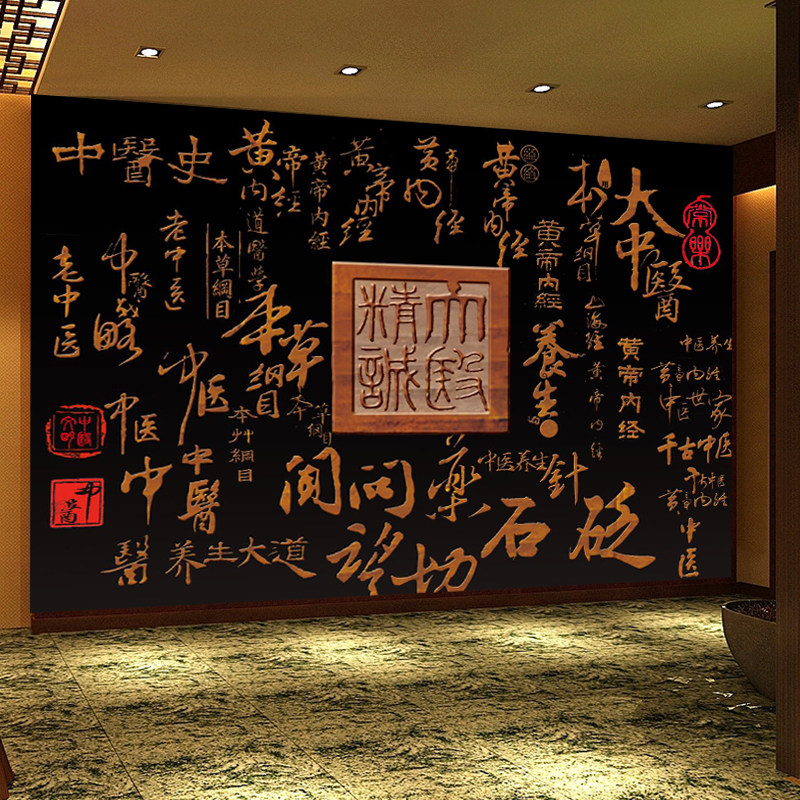 中醫史
黄帝内经
黄帝内经
黄帝内经
黄帝内经
黄帝内经
本草綱目
大中醫
老中医
老中医
中醫
道醫学
本草綱目
黄帝内经
山海经
黄帝内经
黄帝内经
养生
大醫精誠
本草綱目
中医
中医
本草綱目
中医养生
中医世家
千古中医
中医
中醫
中醫
养生大道
闻问望切
药
中医养生
針
石
砭